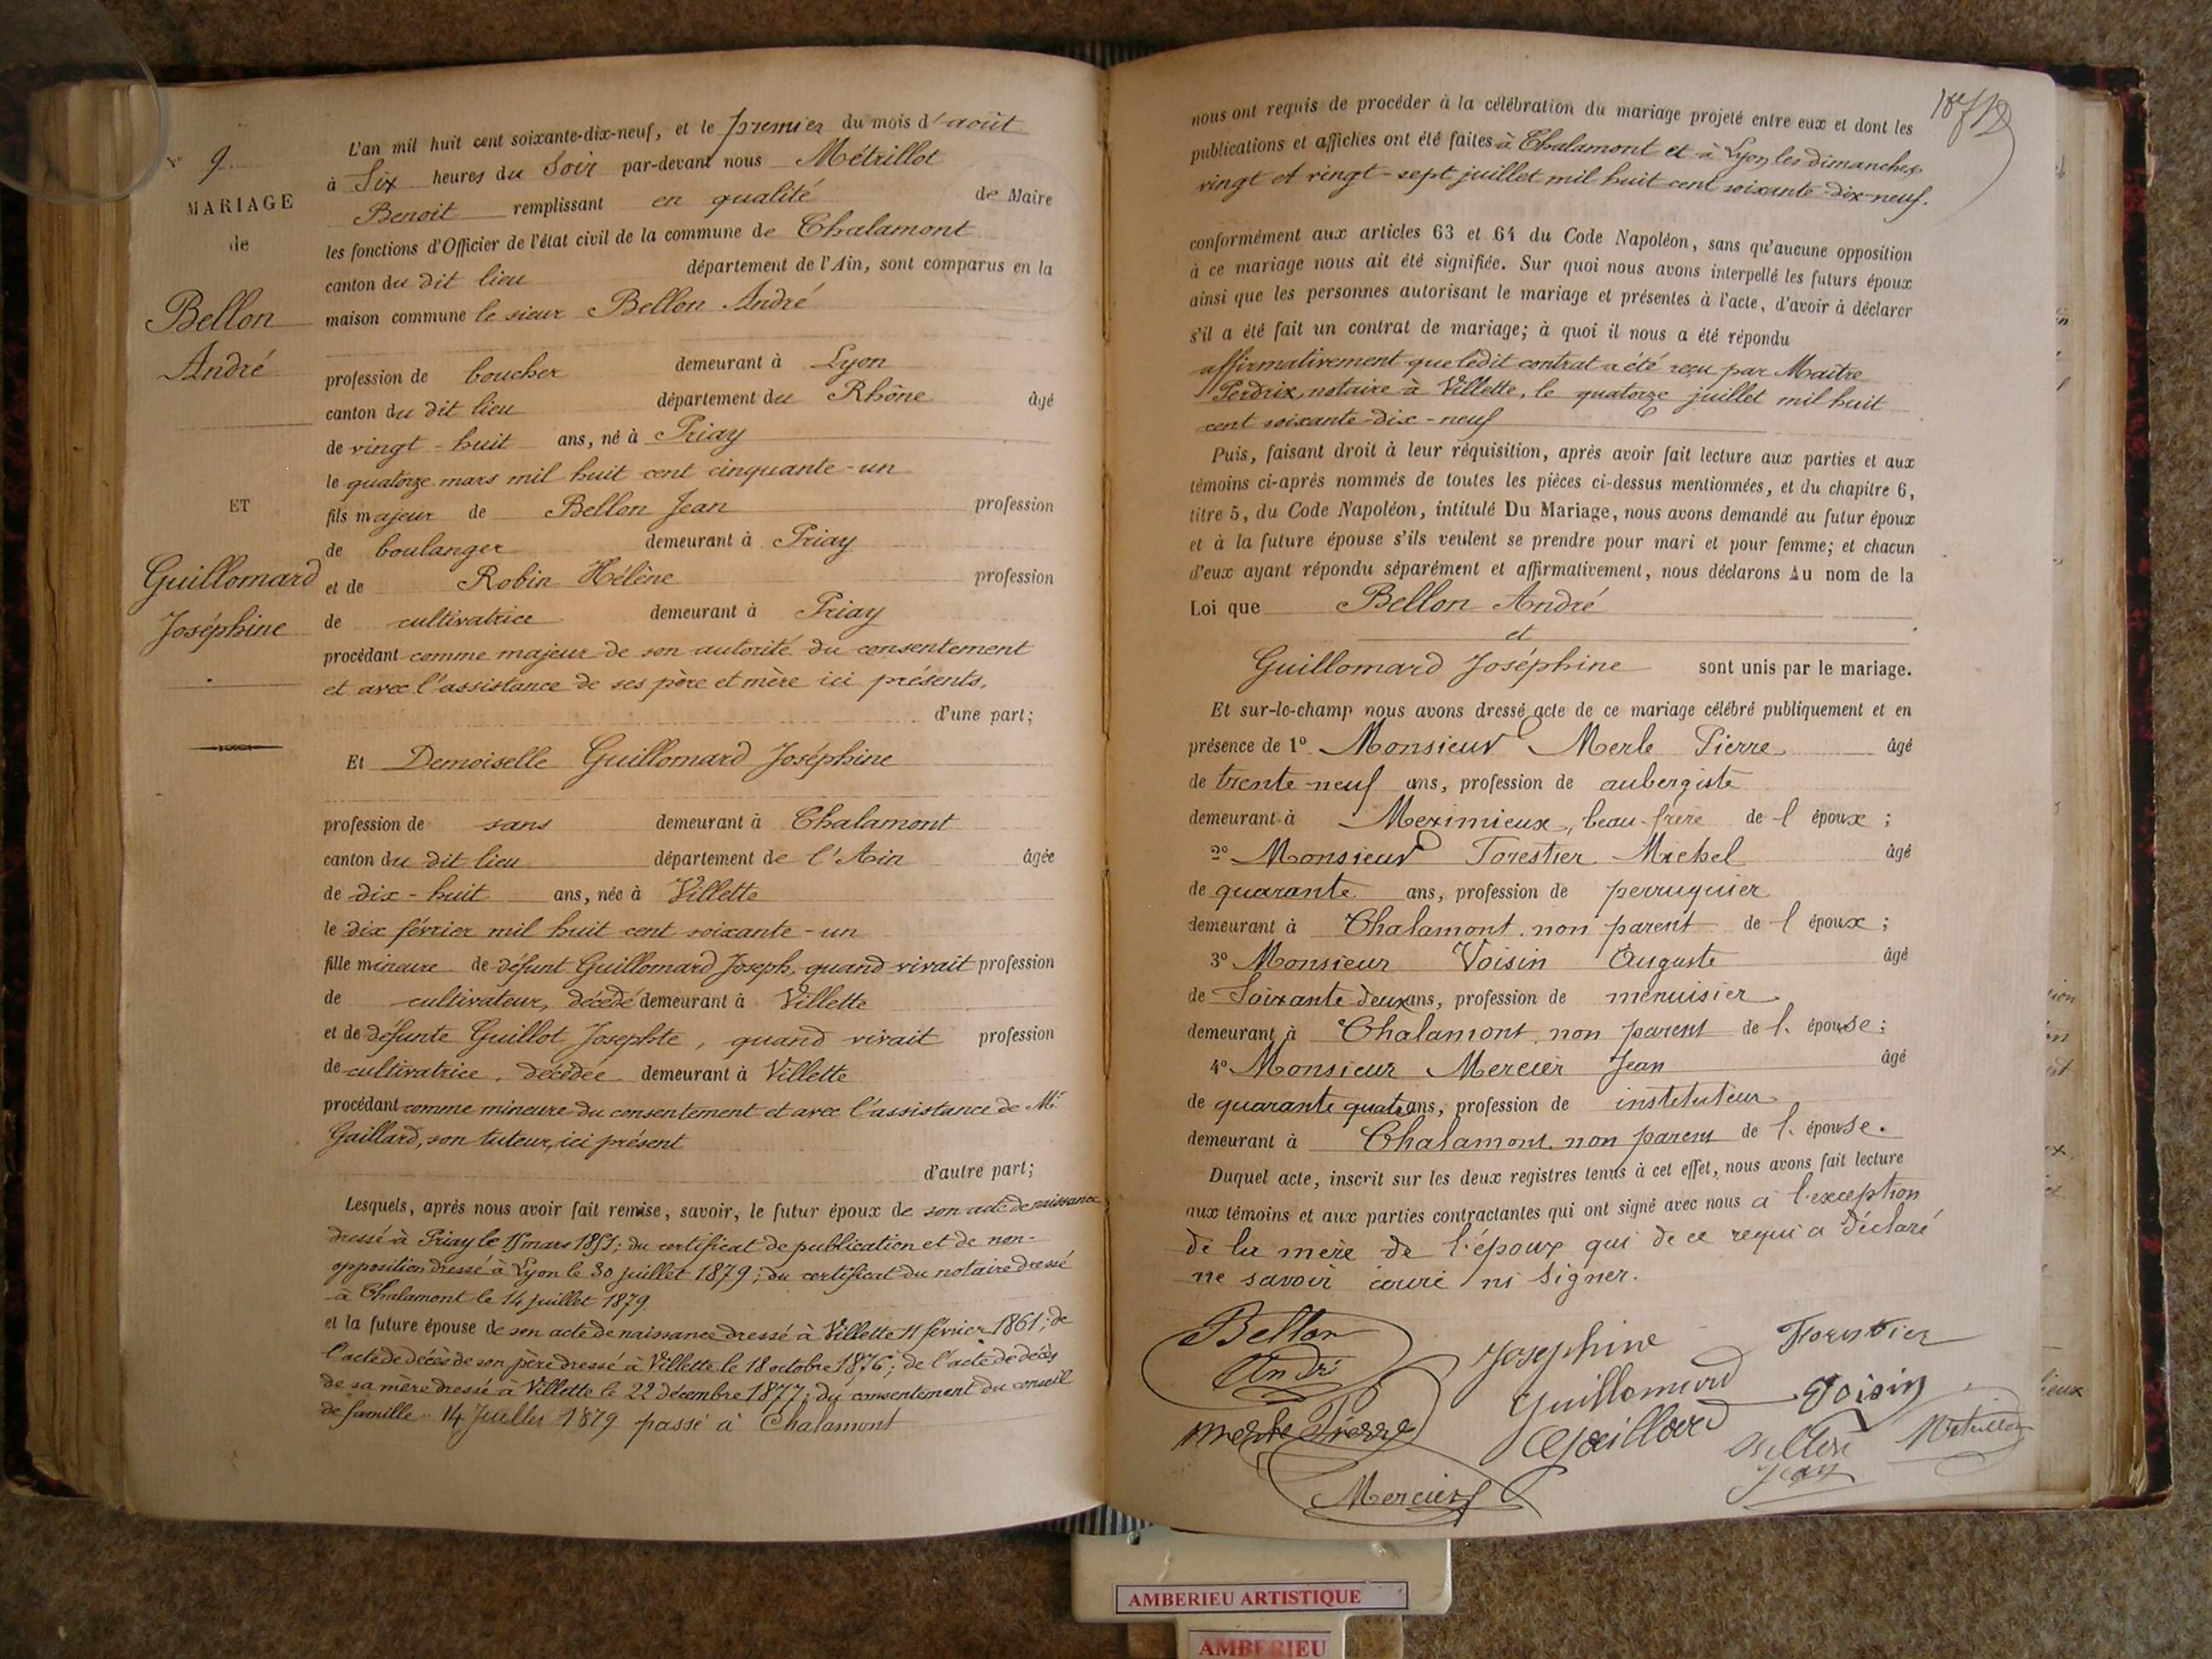 N° 9
MARIAGE
de
Bellon
André
ET
Guillomard
Joséphine
L'an mil huit cent soixante-dix-neuf, et le premier du mois d'août
à Six heures du Soir par-devant nous Métrillot
Benoit remplissant en qualité de Maire
les fonctions d'Officier de l'état civil de la commune de Chalamont
canton du dit lieu département de l'Ain, sont comparus en la
maison commune le sieur Bellon André
profession de boucher demeurant à Lyon
canton du dit lieu département du Rhône âgé
de vingt-huit ans, né à Priay
le quatorze mars mil huit cent cinquante-un
fils majeur de Bellon Jean profession
de boulanger demeurant à Priay
et de Robin Hélène profession
de cultivatrice demeurant à Priay
procédant comme majeur de son autorité du consentement
et avec l'assistance de ses père et mère ici présents,
d'une part;
Et Demoiselle Guillomard Joséphine
profession de sans demeurant à Chalamont
canton du dit lieu département de l'Ain âgée
de dix-huit ans, née à Villette
le dix février mil huit cent soixante-un
fille mineure de défunt Guillomard Joseph, quand vivait profession
de cultivateur, décédé demeurant à Villette
et de défunte Guillot Josephte, quand vivait profession
de cultivatrice, décédée demeurant à Villette
procédant comme mineure du consentement et avec l'assistance de Mr
Gaillard, son tuteur, ici présent
d'autre part;
Lesquels, après nous avoir fait remise, savoir, le futur époux de son acte de naissance
dressé à Priay le 15 mars 1851; du certificat de publication et de non-
opposition dressé à Lyon le 30 juillet 1879; du certificat du notaire dressé
à Chalamont le 14 juillet 1879
et la future épouse de son acte de naissance dressé à Villette 11 février 1861; de
l'acte de décès de son père dressé à Villette le 18 octobre 1876; de l'acte de décès
de sa mère dressé à Villette le 22 décembre 1877; du consentement du conseil
de famille 14 Juillet 1879 passé à Chalamont
nous ont requis de procéder à la célébration du mariage projeté entre eux et dont les
publications et affiches ont été faites à Chalamont et à Lyon les dimanches
vingt et vingt-sept juillet mil huit cent soixante-dix-neuf.
conformément aux articles 63 et 64 du Code Napoléon, sans qu'aucune opposition
à ce mariage nous ait été signifiée. Sur quoi nous avons interpellé les futurs époux
ainsi que les personnes autorisant le mariage et présentes à l'acte, d'avoir à déclarer
s'il a été fait un contrat de mariage; à quoi il nous a été répondu
affirmativement que ledit contrat a été reçu par Maître
Perdrix, notaire à Villette, le quatorze juillet mil huit
cent soixante-dix-neuf
Puis, faisant droit à leur réquisition, après avoir fait lecture aux parties et aux
témoins ci-après nommés de toutes les pièces ci-dessus mentionnées, et du chapitre 6,
titre 5, du Code Napoléon, intitulé Du Mariage, nous avons demandé au futur époux
et à la future épouse s'ils veulent se prendre pour mari et pour femme; et chacun
d'eux ayant répondu séparément et affirmativement, nous déclarons Au nom de la
Loi que Bellon André
et
Guillomard Joséphine sont unis par le mariage.
Et sur-le-champ nous avons dressé acte de ce mariage célébré publiquement et en
présence de 1° Monsieur Merle Pierre âgé
de trente-neuf ans, profession de aubergiste
demeurant à Meximieux, beau-frère de l'époux;
2° Monsieur Forestier Michel âgé
de quarante ans, profession de perruquier
demeurant à Chalamont, non parent de l'époux;
3° Monsieur Voisin Auguste âgé
de Soixante deux ans, profession de menuisier
demeurant à Chalamont, non parent de l'épouse;
4° Monsieur Mercier Jean âgé
de quarante quatre ans, profession de instituteur
demeurant à Chalamont non parent de l'épouse.
Duquel acte, inscrit sur les deux registres tenus à cet effet, nous avons fait lecture
aux témoins et aux parties contractantes qui ont signé avec nous à l'exception
de la mère de l'époux qui de ce requi a déclaré
ne savoir écrire ni signer.
Bellon
André
Joséphine
Guillomard
Forestier
Voisin
Merle Pierre
Gaillard
Bellon
Jean
Métrillot
Mercier
AMBERIEU ARTISTIQUE
AMBERIEU